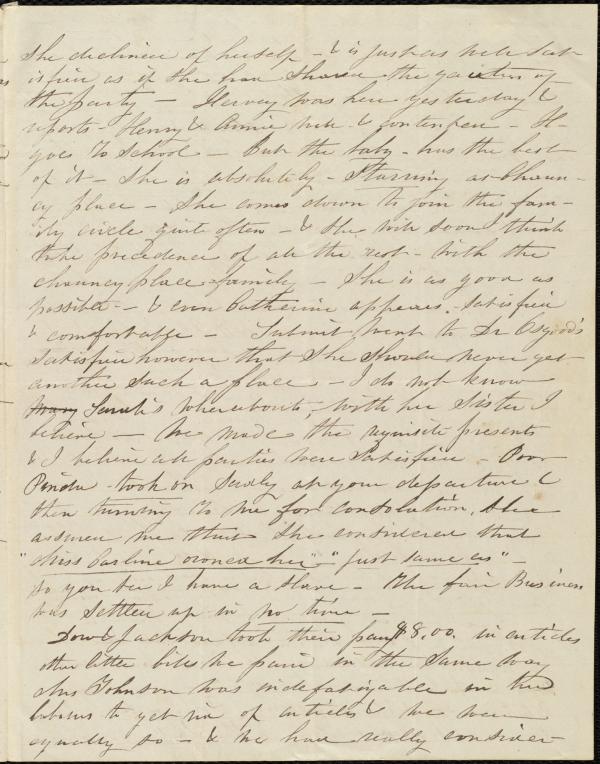 she declined of herself - & is just as well sat-
isfied as if she had shared the gaieties of
the party - Hervey was here yesterday &
reports - Henry & Annie well - & contented - H-
goes to school - But the baby - has the best
of it - She is absolutely - Starring at Chaun-
cy place - She comes down to join the fam-
ily circle quite often - & she will soon I think
take precedence of all the rest - with the
chauncy place family - She is as good as
possible - & even Catherine appears - satisfied
& comfortable - Submit went to Dr Osgood's
satisfied however that she should never get
another such a place - I do not know
Mary Sarah's whereabouts, with her sister I
believe - We made the requisite presents
& I believe all parties were satisfied - Poor
Pinda - took on sadly at your departure &
then turning to me for consolation, she
assured me that she considered that
"Miss Caroline owned her" - "just same as" -
so you see I have a slave - The fair Business
was settled up in no time -
Dow & Jackson took their pay $8,00. in articles
other little bills we paid in the same way
Mrs Johnson was indefatigable in her
labors to get rid of articles & we were
equally so - & we had really consider-